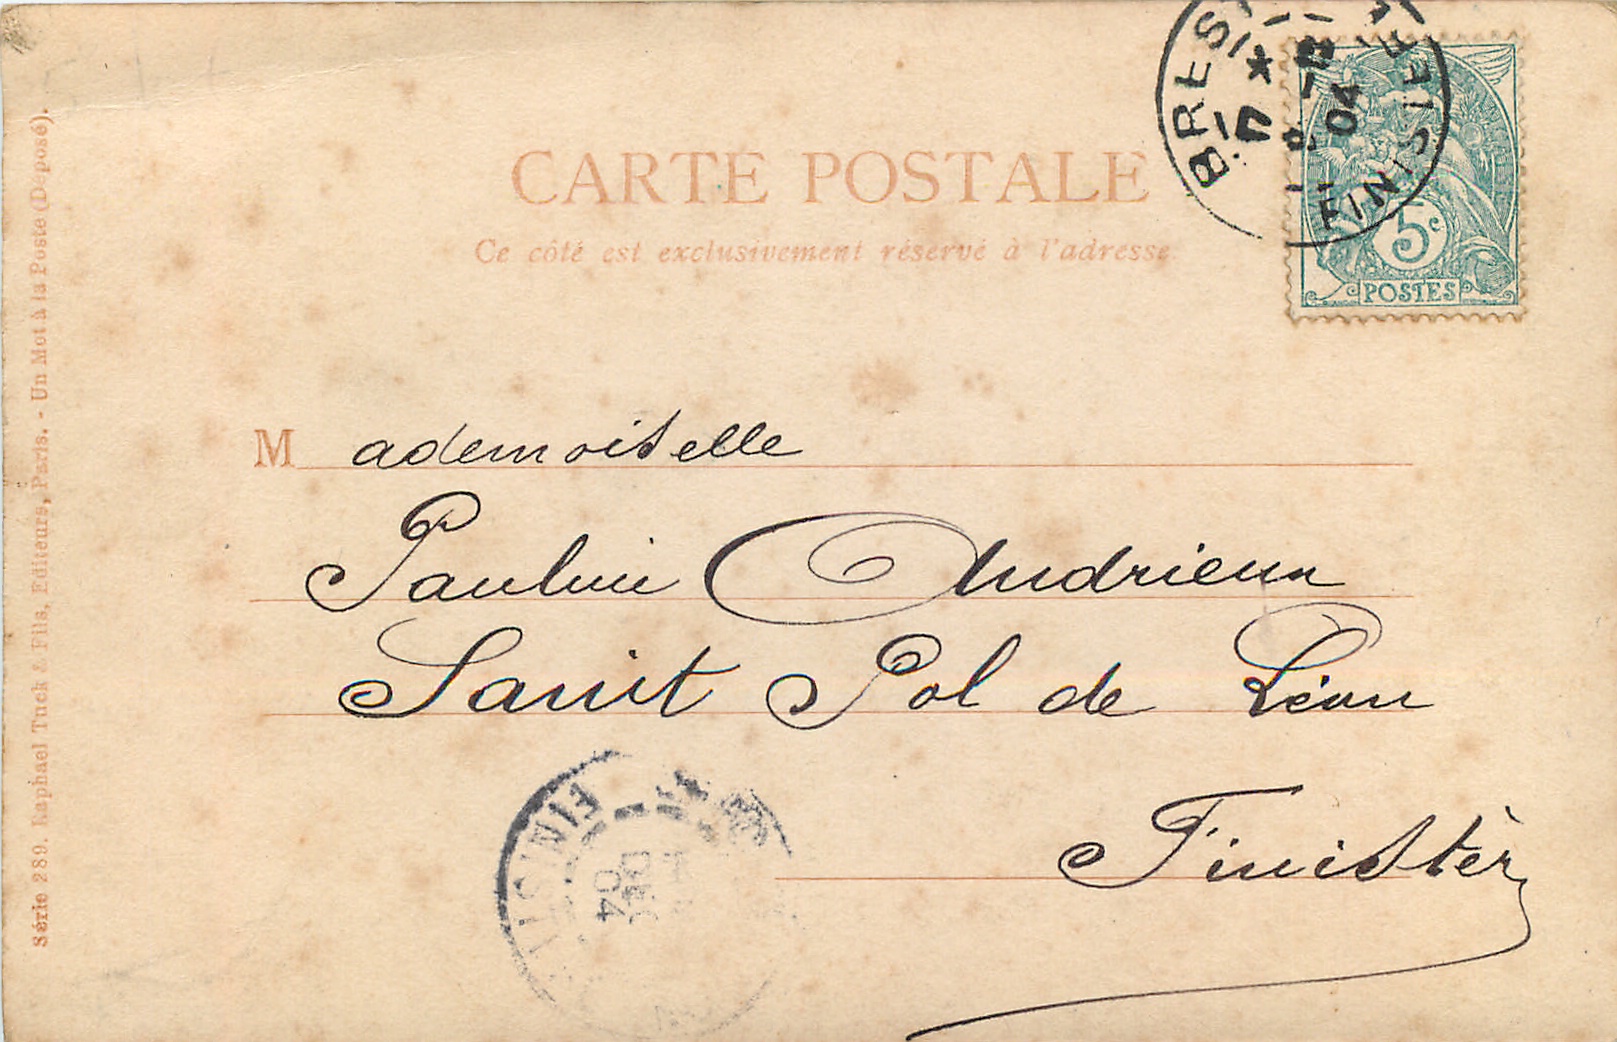 CARTE POSTALE
Ce côté est exclusivement réservé à l'adresse
BREST
FINISTERE
04
5c
POSTES
Mademoiselle
Pauline Andrieux
Saint Pol de Léon
Finistère
FINIST
04
Série 289. Raphael Tuck & Fils, Editeurs, Paris. - Un Mot à la Poste (Déposé).